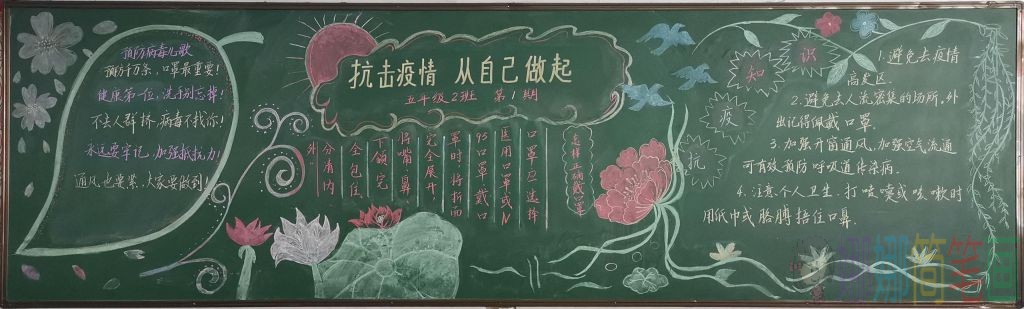 预防病毒儿歌
预防千万条,口罩最重要!
健康第一位,洗手别忘掉!
不去人群挤,病毒不找你!
永远要牢记,加强抵抗力!
通风也要紧,大家要做到!
抗击疫情 从自己做起
五年级2班 第1期
怎样正确戴口罩
口罩应选择
医用口罩或N
95口罩,戴口
罩时将折面
完全展开,
将嘴、鼻、
下颌完
全包住,
分清内
外。
抗
疫
知
识
1.避免去疫情
高发区.
2.避免去人流密集的场所,外
出记得佩戴口罩.
3.加强开窗通风,加强空气流通
可有效预防呼吸道传染病.
4.注意个人卫生,打喷嚏或咳嗽时
用纸巾或胳膊捂住口鼻.
娜简笔画